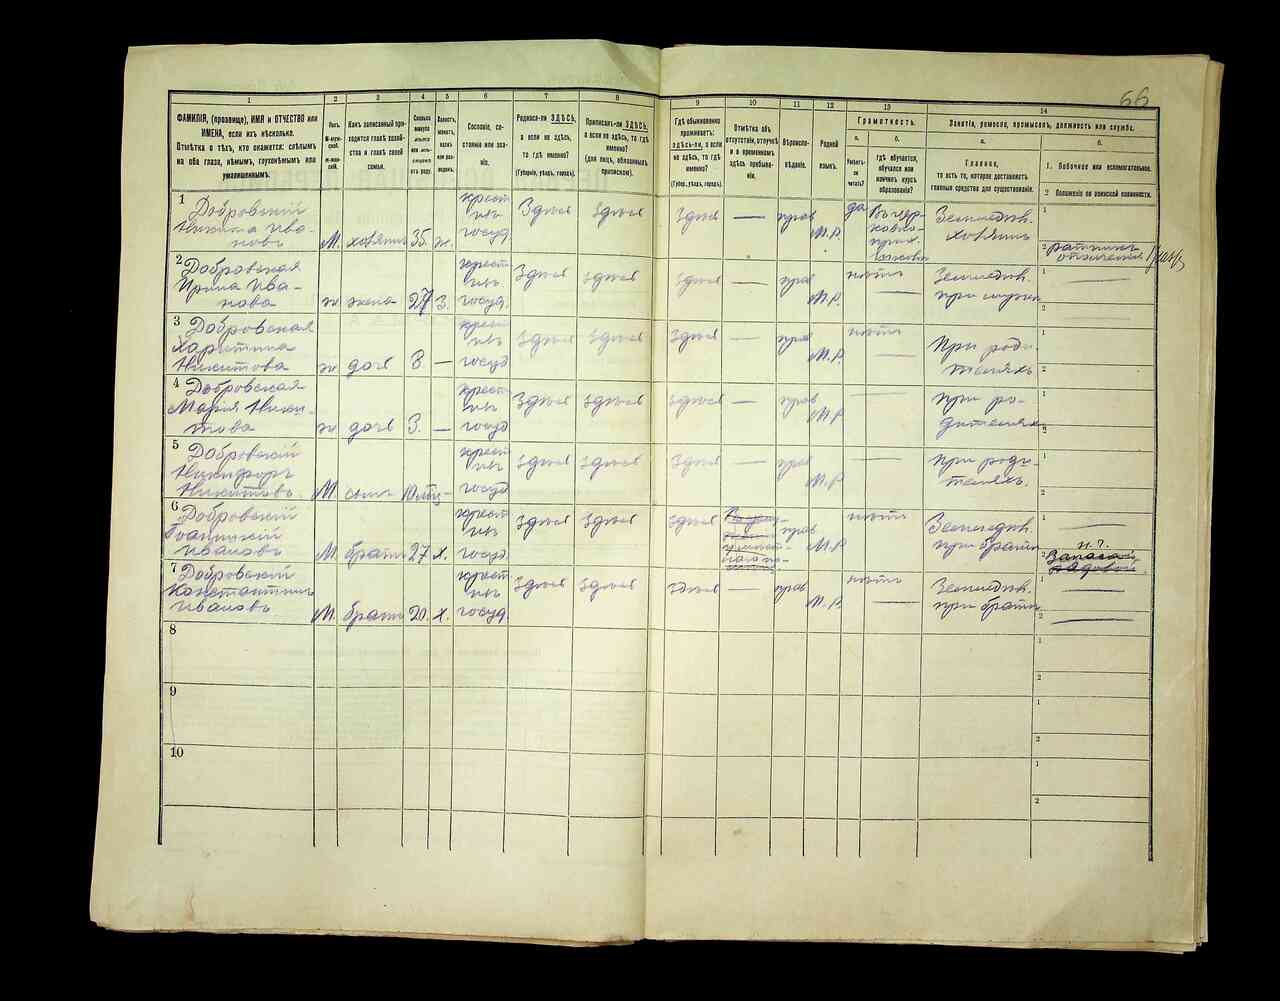 66
1 2 3 4 5 6 7 8 9 10 11 12 13 14
ФАМИЛІЯ, (прозвище), ИМЯ и ОТЧЕСТВО или
ИМЕНА, если ихъ нѣсколько.
Отмѣтка о тѣхъ, кто окажется: слѣпымъ
на оба глаза, нѣмымъ, глухонѣмымъ или
умалишеннымъ.
Полъ.
М-муж-
ской.
Ж-жен-
скій.
Какъ записанный при-
ходится главѣ хозяй-
ства и главѣ своей
семьи.
Сколько
минуло
лѣтъ
или мѣ-
сяцевъ
отъ роду.
Холостъ,
женатъ,
вдовъ
или раз-
веденъ.
Сословіе, со-
стояніе или зва-
ніе.
Родился-ли ЗДѢСЬ,
а если не здѣсь,
то гдѣ именно?
(Губернія, уѣздъ, городъ).
Приписанъ-ли ЗДѢСЬ,
а если не здѣсь, то гдѣ
именно?
(для лицъ, обязанныхъ
припискою).
Гдѣ обыкновенно
проживаетъ:
здѣсь-ли, а если
не здѣсь, то гдѣ
именно?
(Губер., уѣздъ, городъ).
Отмѣтка объ
отсутствіи, отлучкѣ
и о временномъ
здѣсь пребыва-
ніи.
Вѣроиспо-
вѣданіе.
Родной
языкъ.
Грамотность.
а.
Умѣетъ-
ли
читать?
б.
гдѣ обучается,
обучался или
кончилъ курсъ
образованія?
Занятія, ремесло, промыселъ, должность или служба.
а.
Главное,
то есть то, которое доставляетъ
главныя средства для существованія.
б.
1. Побочное или вспомогательное.
2 Положеніе по воинской повинности.
1
Добровскій
Никита Ива-
новъ
М. хозяинъ 35. ж.
крест
изъ
госуд.
Здѣся здѣся здѣся — прав М.Р. да
В церк
ковно-
прих.
Земледѣл.
хозяинъ
1
2 ратникъ
ополченія
2
Добровская
Ирина Ива-
нова
ж жена 27 З.
крест
изъ
госуд.
Здѣся здѣся здѣся — прав М.Р. нѣтъ —
Земледѣл.
при мужѣ
1 —
2 —
3
Добровская
Харитина
Никитова
ж дочь 8. —
крест
изъ
госуд
здѣся здѣся здѣся — прав М.Р. нѣтъ —
При роди-
теляхъ
1
2
4
Добровская
Марія Ники-
това
ж дочь 3. —
крест
изъ
госуд
здѣся здѣся здѣся — прав М.Р —
при ро-
дителяхъ
1
2
5
Добровскій
Никифоръ
Никитовъ
М. сынъ 10 мѣс —
крест
изъ
госуд
здѣся здѣся здѣся — прав М.Р —
при роди-
теляхъ.
1
2
6
Добровскій
Иванов
М. братъ 27 х.
крест
изъ
госуд.
здѣся здѣся здѣся прав М.Р нѣтъ
Земледѣл.
при братѣ
1 —
н.ч.
2 Запасной
рядовой
7
Добровскій
Константинъ
Ивановъ
М. братъ 20. х.
крест
изъ
госуд.
здѣся здѣся здѣся — прав М.Р. нѣтъ —
Земледѣл.
при братѣ
1 —
2 —
8
1
2
9
1
2
10
1
2